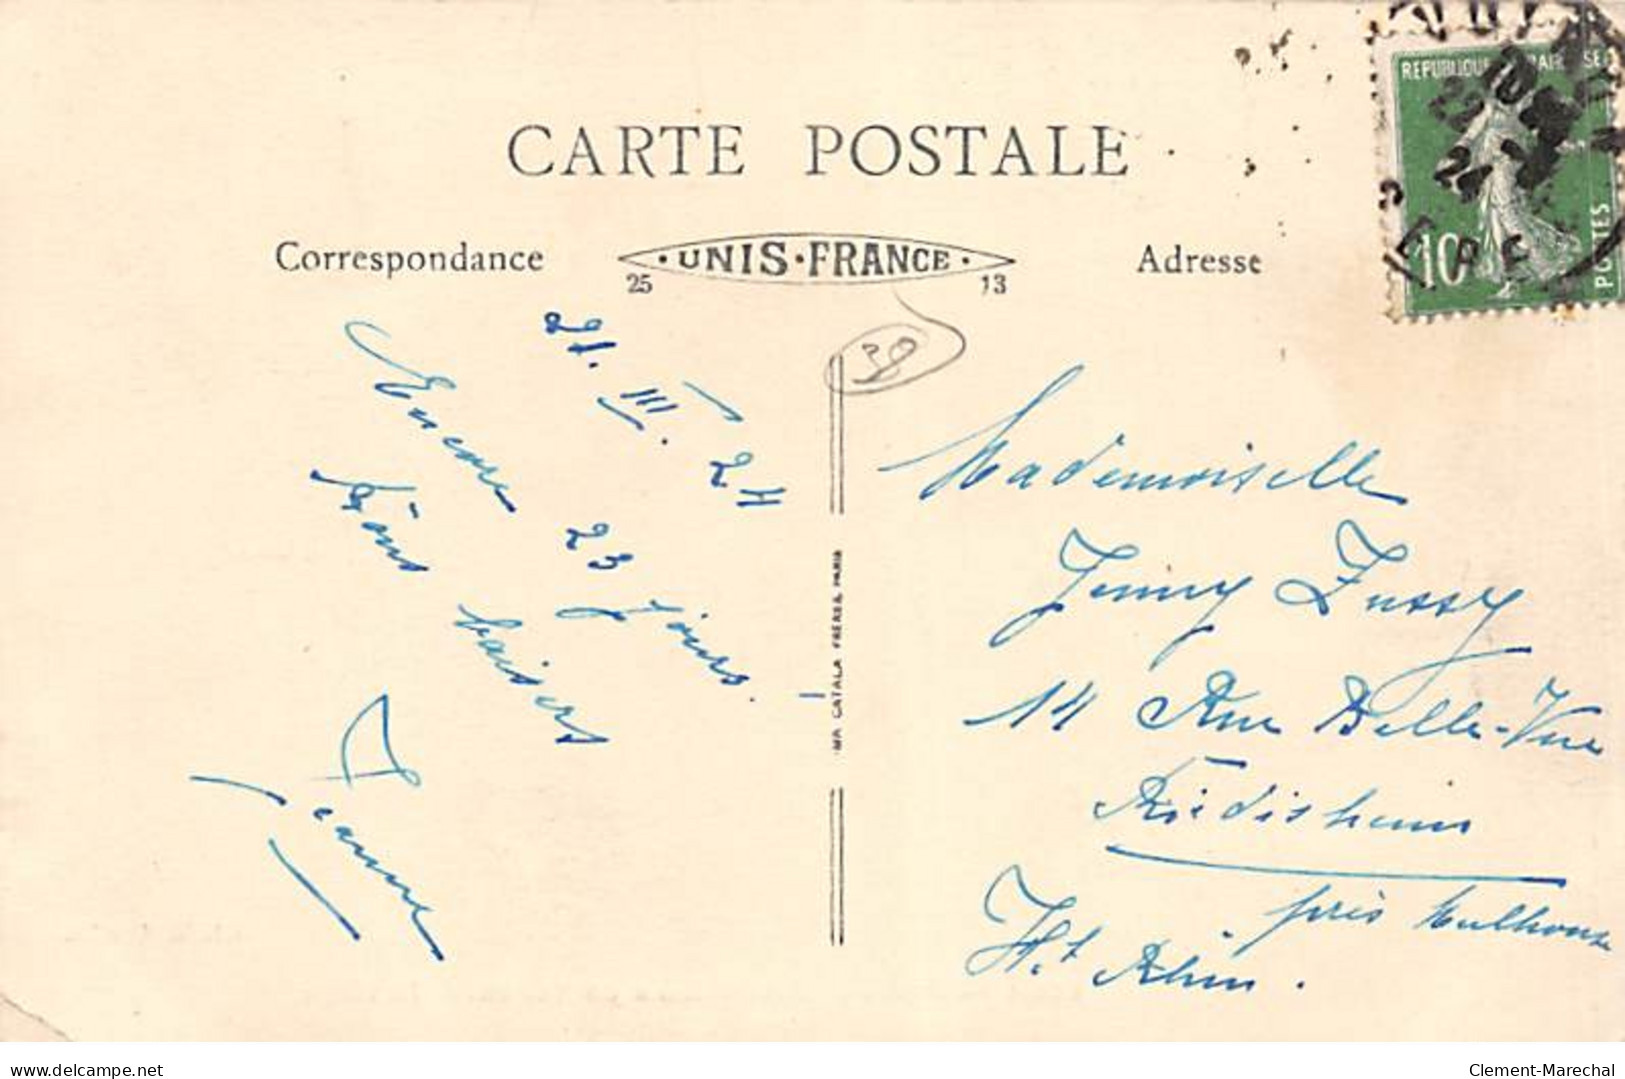 CARTE POSTALE
Correspondance
UNIS·FRANCE
25 13
Adresse
REPUBLIQUE FRANCAISE
10
POSTES
22
24
ERE
38
21. III. 24
Encore 23 jours.
Bons baisers
Jeanne
IMP. CATALA FRERES, PARIS
Mademoiselle
Jenny Zussy
14 Rue Belle-Vue
Riedisheim
près Mulhouse
Ht Rhin.
delcampe.net
Clement-Marechal